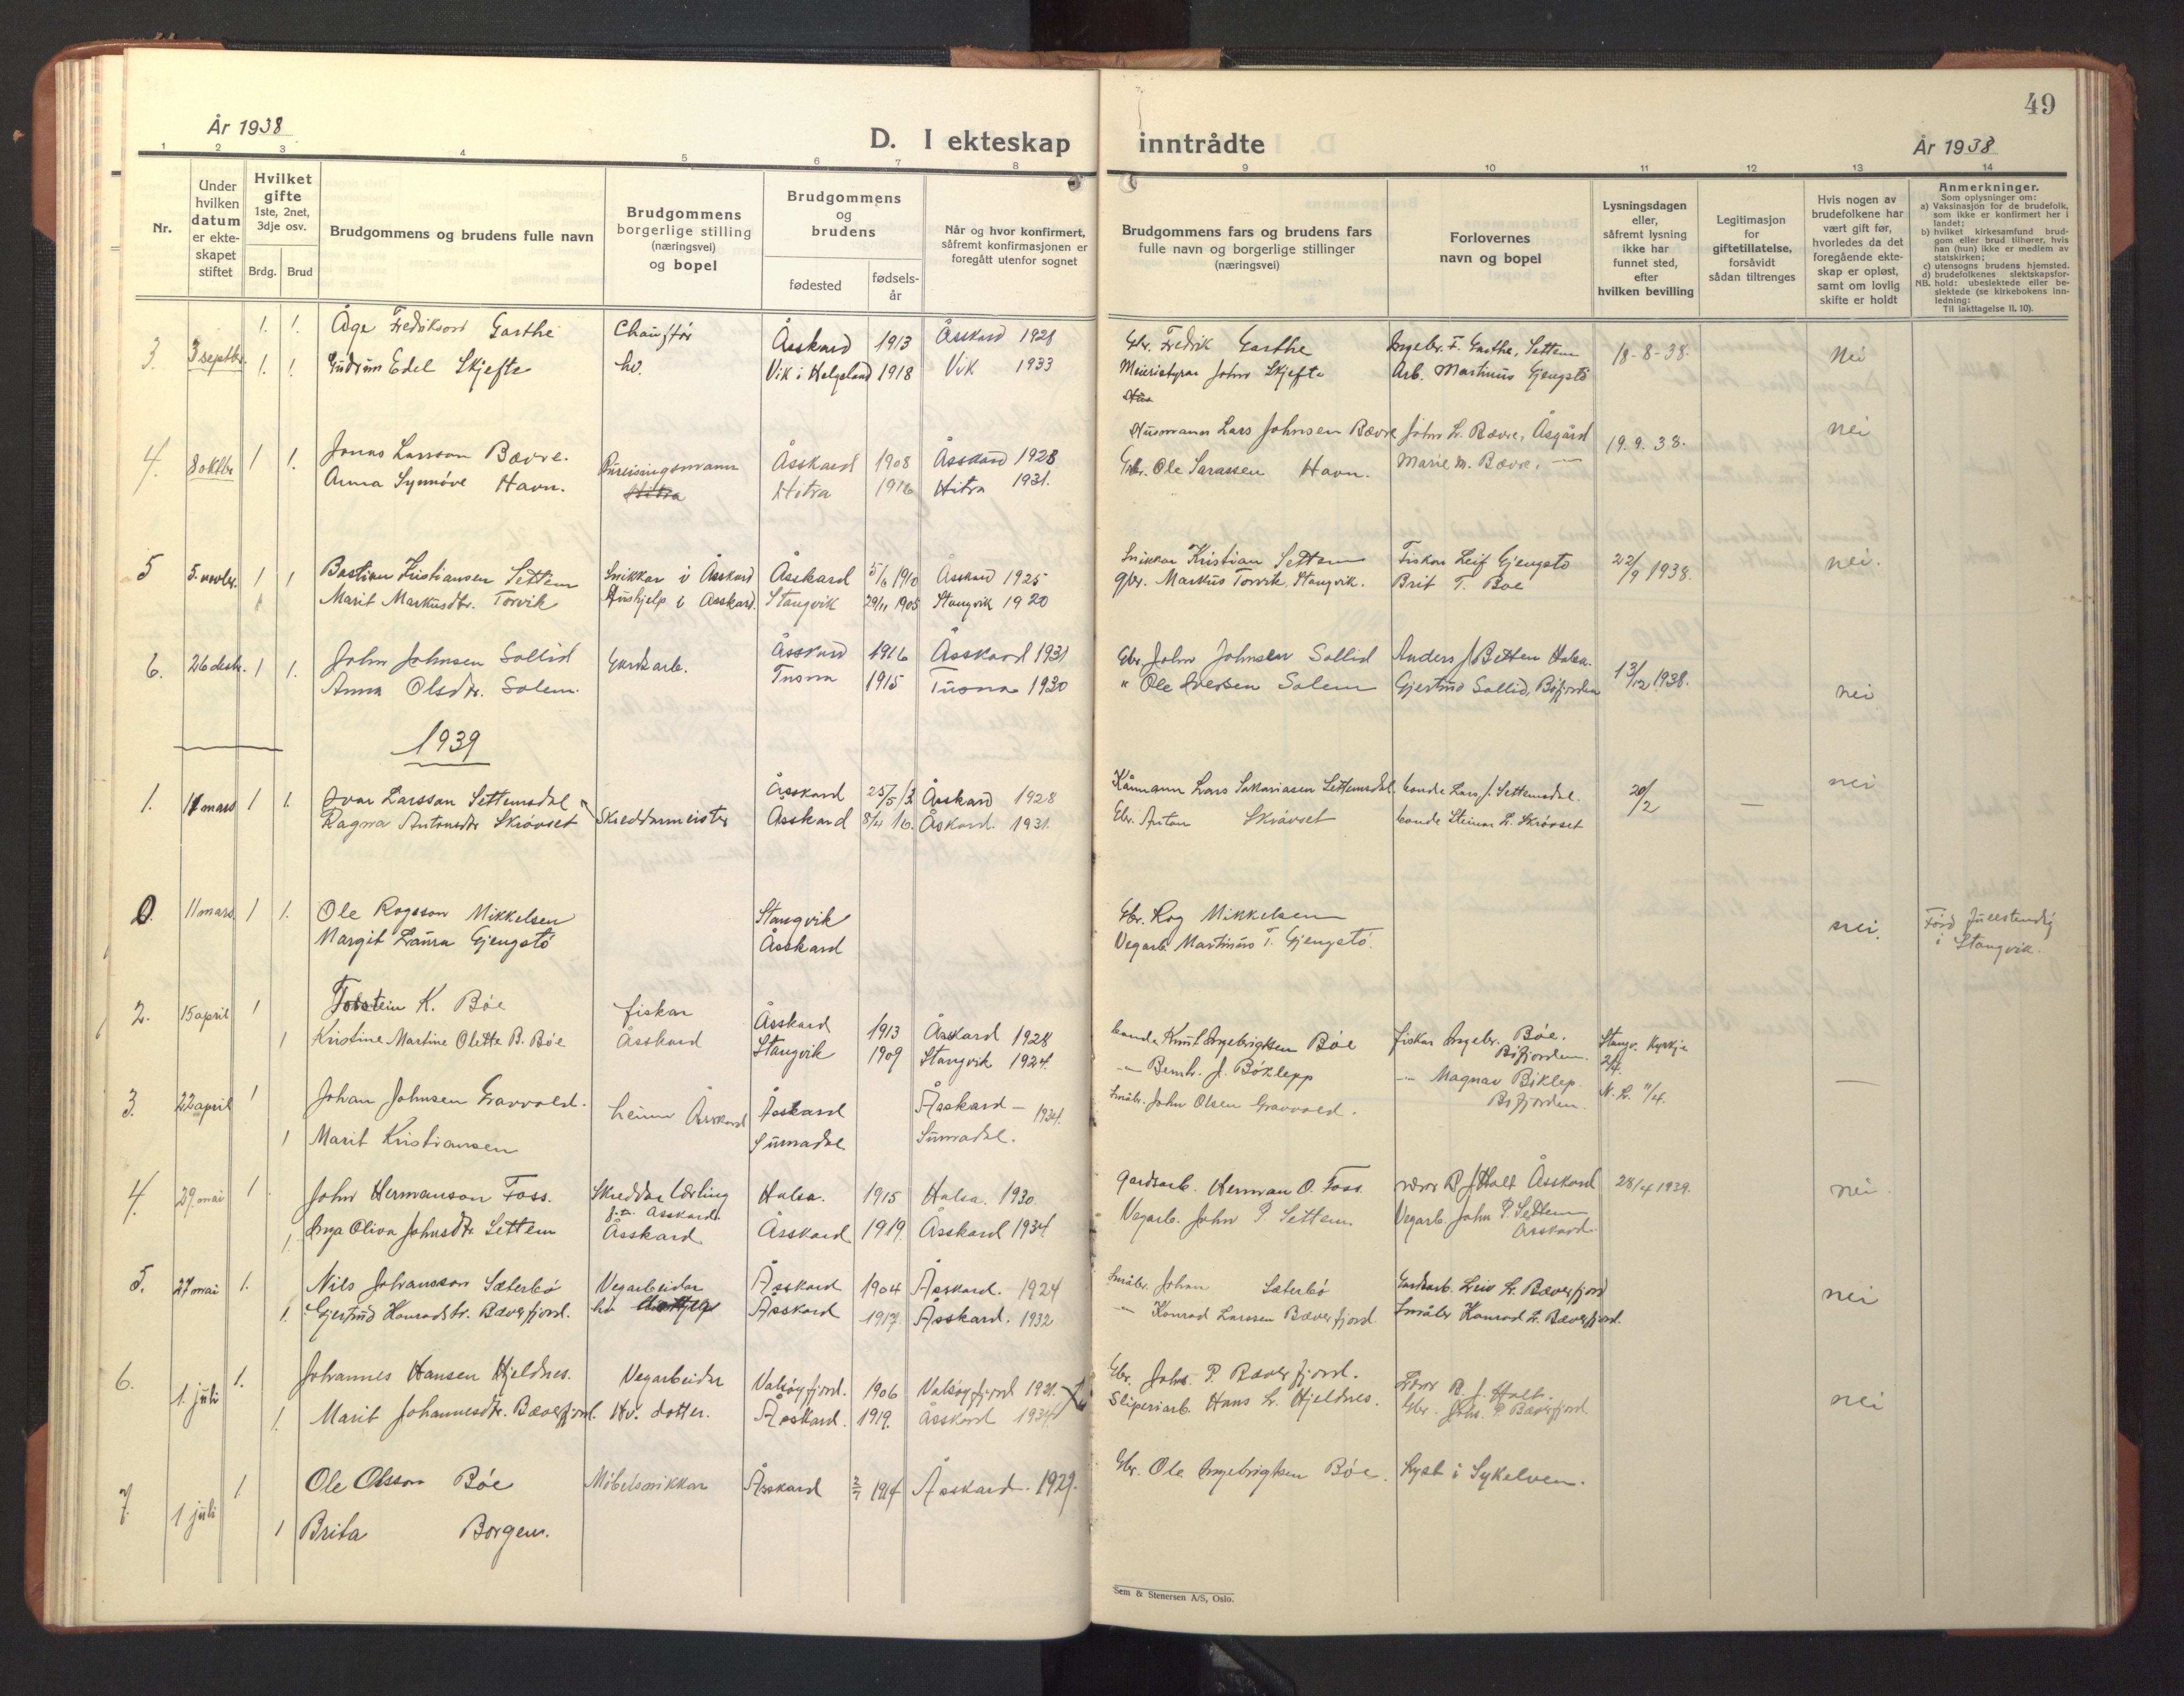 År 1938
D. I ekteskap
inntrådte
År 1938
49
1 2 3 4 5 6 7 8 9 10 11 12 13 14
Nr.
Under hvilken datum er ekteskapet stiftet
Hvilket gifte 1ste, 2net, 3dje osv.
Brdg. Brud
Brudgommens og brudens fulle navn
Brudgommens borgerlige stilling (næringsvei) og bopel
Brudgommens og brudens
fødested
fødselsår
Når og hvor konfirmert, såfremt konfirmasjonen er foregått utenfor sognet
Brudgommens fars og brudens fars fulle navn og borgerlige stillinger (næringsvei)
Forlovernes navn og bopel
Lysningsdagen eller, såfremt lysning ikke har funnet sted, efter hvilken bevilling
Legitimasjon for giftetillatelse, forsåvidt sådan tiltrenges
Hvis nogen av brudefolkene har vært gift før, hvorledes da det foregående ekteskap er opløst, samt om lovlig skifte er holdt
Anmerkninger.
Som oplysninger om:
a) Vaksinasjon for de brudefolk, som ikke er konfirmert her i landet;
b) hvilket kirkesamfund brudgom eller brud tilhører, hvis han (hun) ikke er medlem av statskirken;
c) utensogns brudens hjemsted.
d) brudefolkenes slektskapsforhold: ubeslektede eller beslektede (se kirkebokens innledning:
NB. Til iakttagelse II. 10).
3. 3 septbr. 1. 1. Åge Fredriksson Garthe Chauffør Åsskard 1913 Åsskard 1928 Gbr. Fredrik Garthe Ingebr. F. Garthe, Settem 18-8-38. Nei
1. 1. Gudrun Edel Skjefte hv. Vik i Helgeland 1918 Vik 1933 Meieristyrar John Skjefte Arb. Martinus Gjengstø
4. 8 oktbr 1 1. Jonas Larsson Bævre. Bureisingsmann Åsskard 1908 Åsskard 1928 Husmann Lars Johnsen Bævre John L. Bævre, Åsgård 19.9.38. nei
Anna Synnøve Havn. Hitra Hitra 1916 Hitra 1931. Gbr. Ole Sarassen Havn. Marie M. Bævre. —
5 5. novbr. 1 1 Bastian Kristiansen Settem Snikkar i Åsskard Åsskard 5/6 1910 Åsskard 1925 Snikkar Kristian Settem Fiskar Leif Gjengstø 22/9 1938. nei.
Marit Markusdtr. Torvik Hushjelp i Åsskard. Stangvik 29/11 1905 Stangvik 1920 gbr. Markus Torvik, Stangvik. Brit T. Bøe
6. 26 desbr. 1 1. John Johnsen Sollid Gardsarb. Åsskard 1916 Åsskard 1931 Gbr. John Johnsen Sollid Anders J. Betten Halsa. 13/12 1938. nei
Anna Olsdtr. Solem. Tusna 1915 Tusna 1930 " Ole Iversen Solem Gjertrud Sollid, Bøfjorden
1939
1. 11 mars 1 1. Ivar Larsson Settemsdal Skreddarmeister Åsskard 25/5 12 Åsskard 1928 Kårmann Lars Sakariasen Settemsdal. bonde Lars J. Settemsdal. 20/2 — nei
Ragna Antonsdtr Skrøvset Åsskard 8/4 16. Åskard. 1931. Gbr. Anton Skrøvset bonde Steinar L. Skrøvset
0. 11 mars 1 1. Ole Rogsson Mikkelsen Stangvik Gbr. Rog Mikkelsen nei. Ført fullstendig
Margit Laura Gjengstø Åsskard Vegarb. Martinus T. Gjengstø. i Stangvik.
2. 15 april 1 Torstein K. Bøe fiskar Åsskard 1913 Åsskard 1928 bonde Knut Ingebrigtsen Bøe fiskar Ingebr. Bøe. Bøfjorden. Stangv. Kyrkje 2/4.
1 Kristine Martine Olette B. Bøe Åsskard Stangvik 1909 Stangvik 1924. —"— Bernh. J. Bøklepp —"— Magnar Bøklep. Bøfjorden. N. L. 11/4. —
3. 22 april 1 Johan Johnsen Gravvold. heime Åsskard Åsskard Åsskard — 1934. Småbr. John Olsen Gravvold.
1 Marit Kristiansen Surnadal Surnadal.
4. 29. mai 1. John Hermanson Foss. Skreddarlærling f.t. Åsskard. Halsa. 1915 Halsa. 1930. Gardsarb. Herman O. Foss. B. J. Holt Åsskard 28/4 1939. nei.
1. Inga Oliva Johnsdtr Settem Åsskard Åsskard 1919. Åsskard 1934 Vegarb. John P. Settem Vegarb. John P. Settem Åsskard
5. 27 mai 1. Nils Johansson Sæterbø Vegarbeidar Åsskard 1904 Åsskard. 1924 Småbr. Johan Sæterbø Gardsarb. Leiv K. Bæverfjord nei
1. Gjertrud Konradstr. Bæverfjord. hv Åsskard 1917. Åsskard. 1932 —"— Konrad Larssen Bæverfjord. Småbr Konrad L. Bæverfjord.
6. 1. juli 1. Johannes Hansen Hjeldnes. Vegarbeidar Valsøyfjord. 1906 Valsøyfjord 1921. Gbr. Johs. P. Bæverfjord. B. J. Holt. nei
1. Marit Johannesdtr. Bæverfjord. Hv. dotter. Åsskard. 1919. Åsskard 1934 Sliperiarb. Hans L. Hjeldnes. Gbr. Johs. P. Bæverfjord
7. 1 juli 1 Ole Olsson Bøe Møbelsnikkar Åsskard 2/7 1914 Åsskard. 1929. Gbr. Ole Ingebrigtsen Bøe. Lyst i Sykelven.
1 Brita Borgen.
Sem & Stenersen A/S, Oslo.